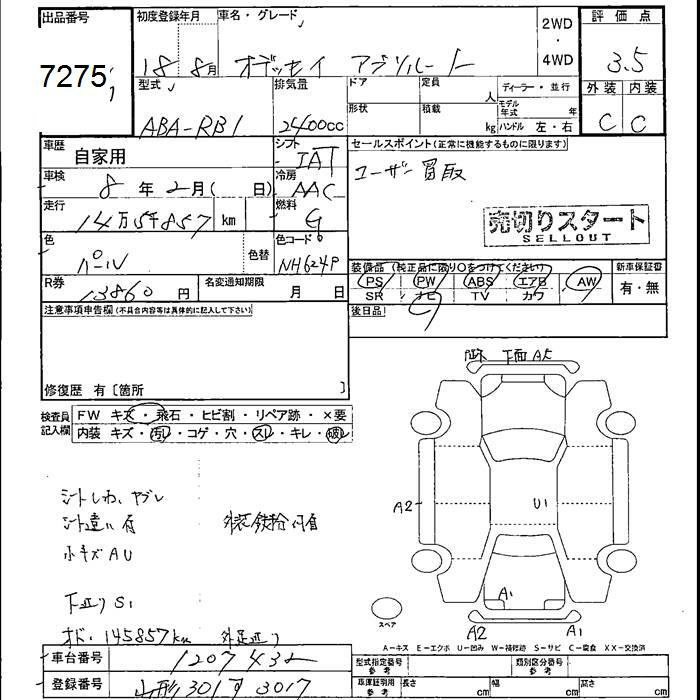 出品番号
7275
初度登録年月 車名・グレード
18 8月 オデッセイ アブソルート
2WD
・
4WD
評価点
3.5
外装 内装
C C
型式
ABA-RB1
排気量
2400cc
ドア
形状
定員
人
積載
kg
ディーラー・並行
モデル年式 年
ハンドル 左・右
車歴
自家用
シフト
IAT
車検
8年2月( 日)
冷房
AAC
走行
14万5千857 km
燃料
G
色
パール
色替
色コード
NH624P
R券
13860円
名変通知期限
月 日
セールスポイント(正常に機能するものに限ります)
ユーザー買取
売切りスタート
SELLOUT
装備品(純正品に限り○をつけてください)
PS PW ABS エアB AW
SR ナビ TV カワ
新車保証書
有・無
後日品
注意事項申告欄(不具合内容等は具体的に記入して下さい)
修復歴 有[箇所 ]
検査員記入欄
FW キズ・飛石・ヒビ割・リペア跡・×要
内装 キズ・汚レ・コゲ・穴・スレ・キレ・破レ
シートしわ、ヤブレ
シート違い有
小キズAU
外装鉄粉有
下廻りS1
オド、145857km
下面
A2
U1
A1
A2
A1
スペア
A−キズ E−エクボ U−凹み W−補修跡 S−サビ C−腐食 XX−交換済
車台番号
1207432
登録番号
山形301す3017
型式指定番号
参考
類別区分番号
参考
車庫証明用
参考
長さ cm
幅 cm
高さ cm